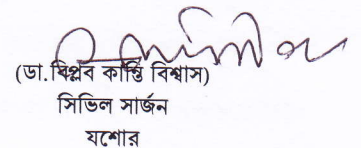 (ডা.বিপ্লব কান্তি বিশ্বাস)
সিভিল সার্জন
যশোর